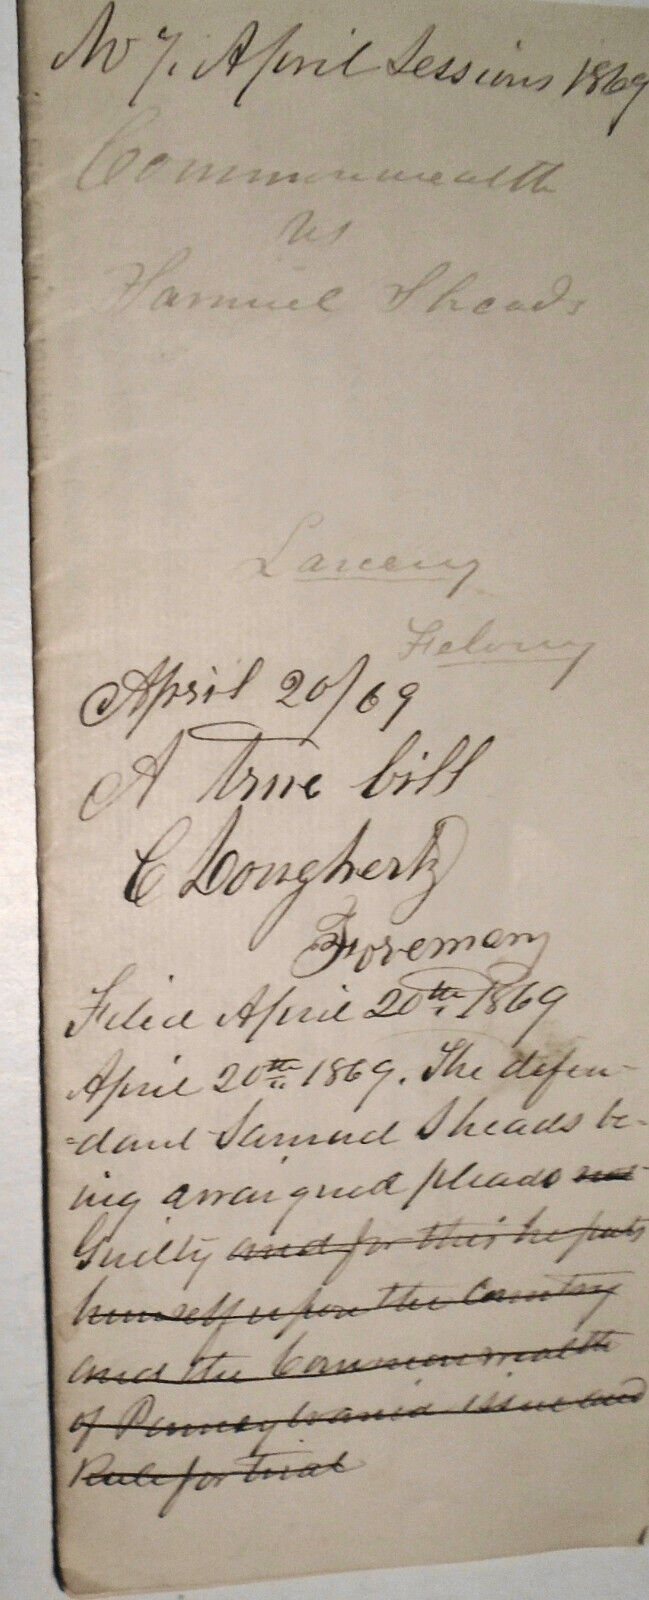 No 7. April Sessions 1869
Commonwealth
vs
Samuel Sheads
Larceny
Felony
April 20/69
A true bill
C Dougherty
Foreman
Filed April 20th 1869
April 20th 1869. The defen-
-dant Samuel Sheads be-
ing arraigned pleads not
Guilty and for this he puts
himself upon the Country
and the Commonwealth
of Pennsylvania issue and
Rule for trial